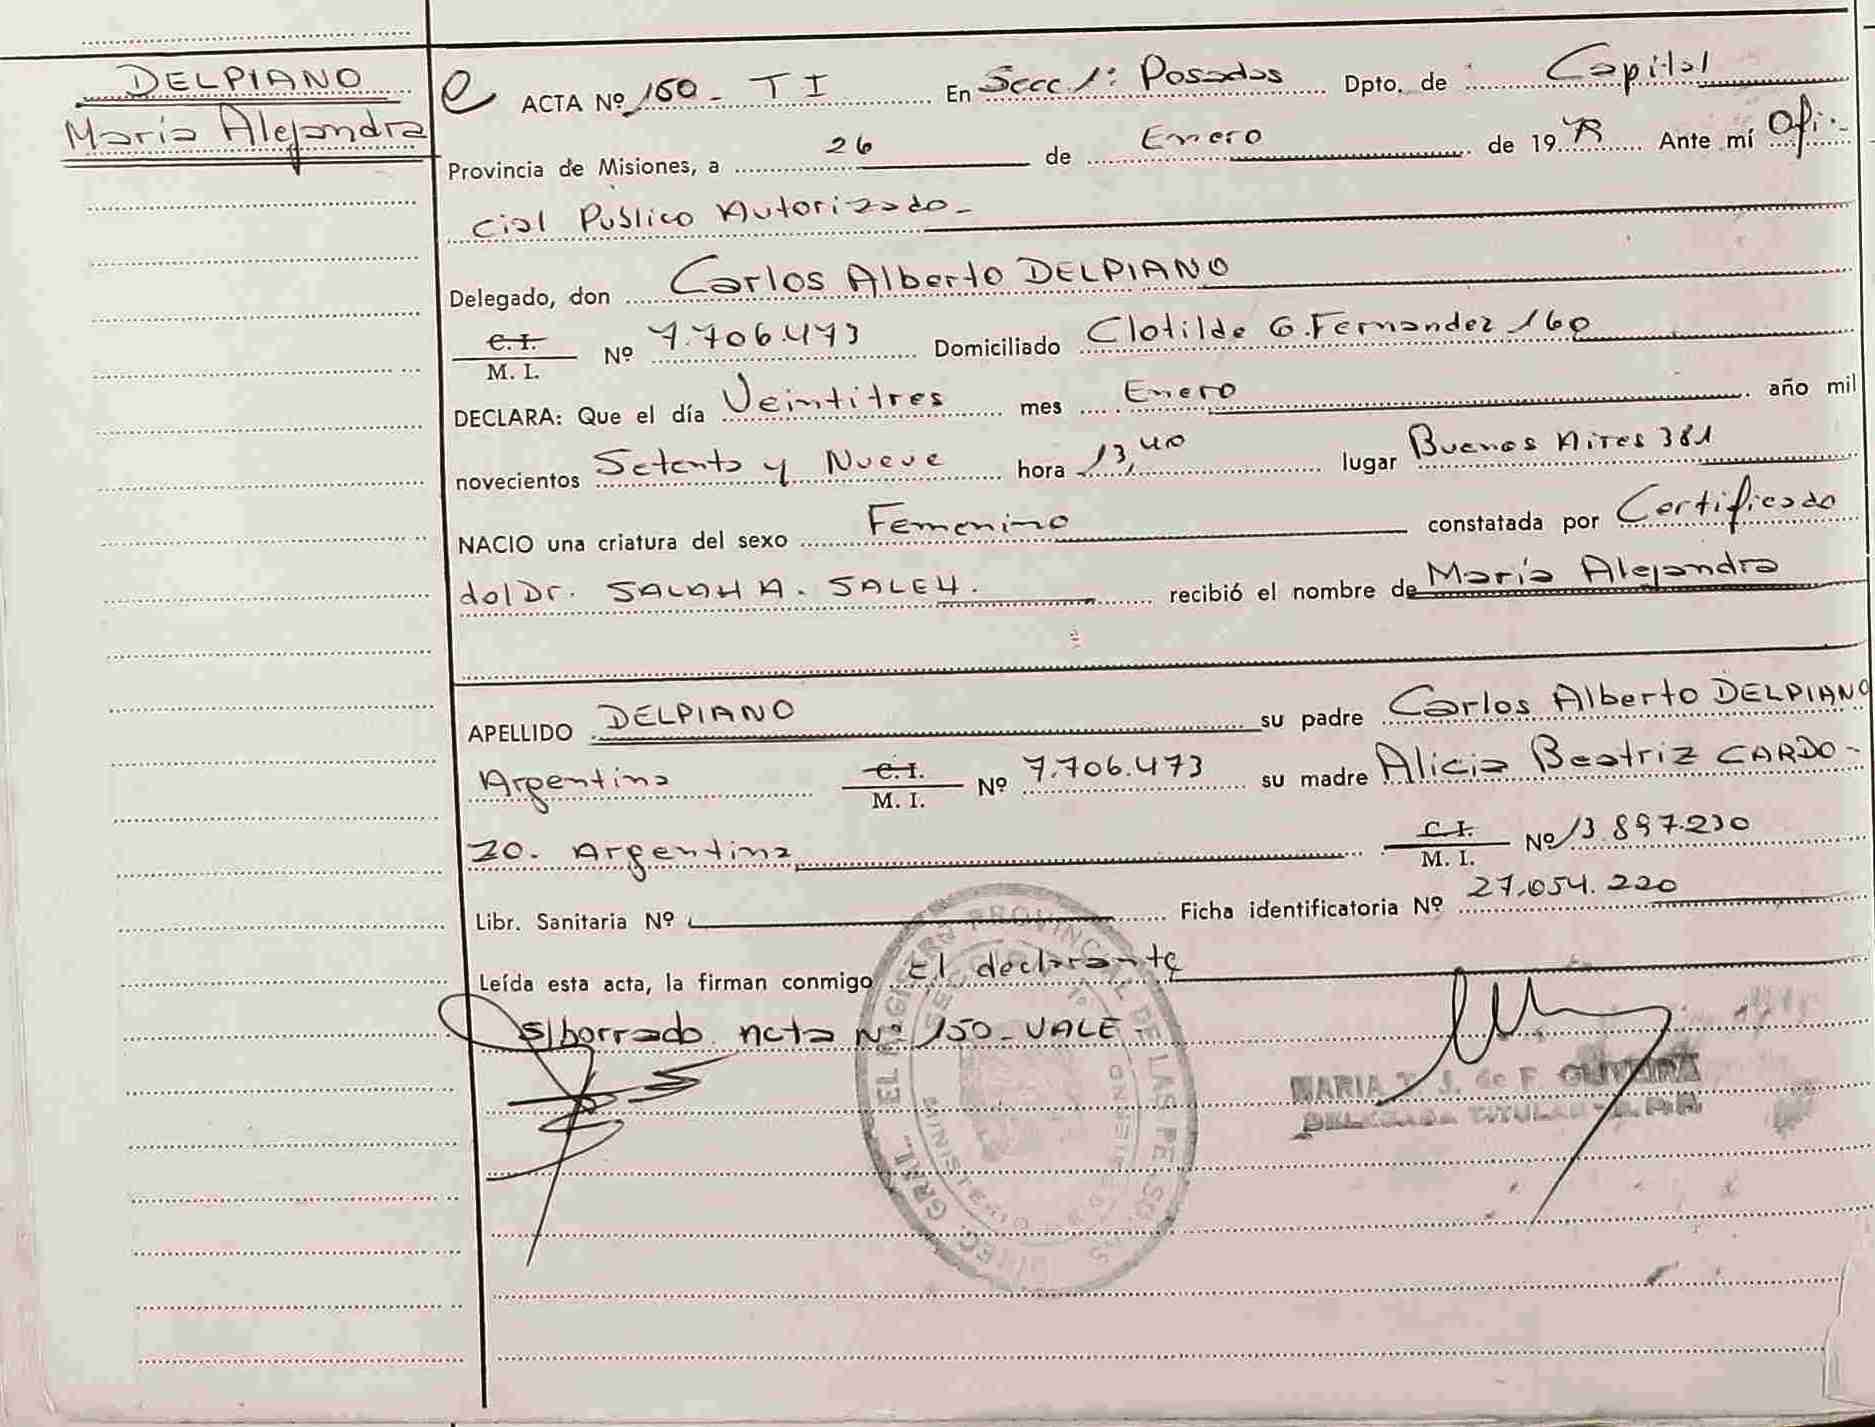 DELPIANO
María Alejandra
ACTA Nº 150 - T I En Secc 1: Posadas Dpto. de Capital
Provincia de Misiones, a 26 de Enero de 1979 Ante mí Ofi-
cial Publico Autorizado -
Delegado, don Carlos Alberto DELPIANO
C. I.
M. I. Nº 7.706.473 Domiciliado Clotilde G. Fernandez 160
DECLARA: Que el día Veintitres mes Enero año mil
novecientos Setenta y Nueve hora 13,40 lugar Buenos Aires 381
NACIO una criatura del sexo Femenino constatada por Certificado
del Dr. SALAH A. SALEH. recibió el nombre de María Alejandra
APELLIDO DELPIANO su padre Carlos Alberto DELPIANO
Argentina C. I. M. I. Nº 7.706.473 su madre Alicia Beatriz CARDO-
ZO. Argentina C. I. M. I. Nº 13.897.230
Libr. Sanitaria Nº Ficha identificatoria Nº 27.054.220
Leída esta acta, la firman conmigo El declarante
s/borrado acta Nº 150 - VALE -
MARIA T. J. de F. OLIVEIRA
DELEGADA TITULAR
DIREC. GRAL. DEL REGISTRO PROVINCIAL DE LAS PERSONAS
MINISTERIO DE GOBIERNO